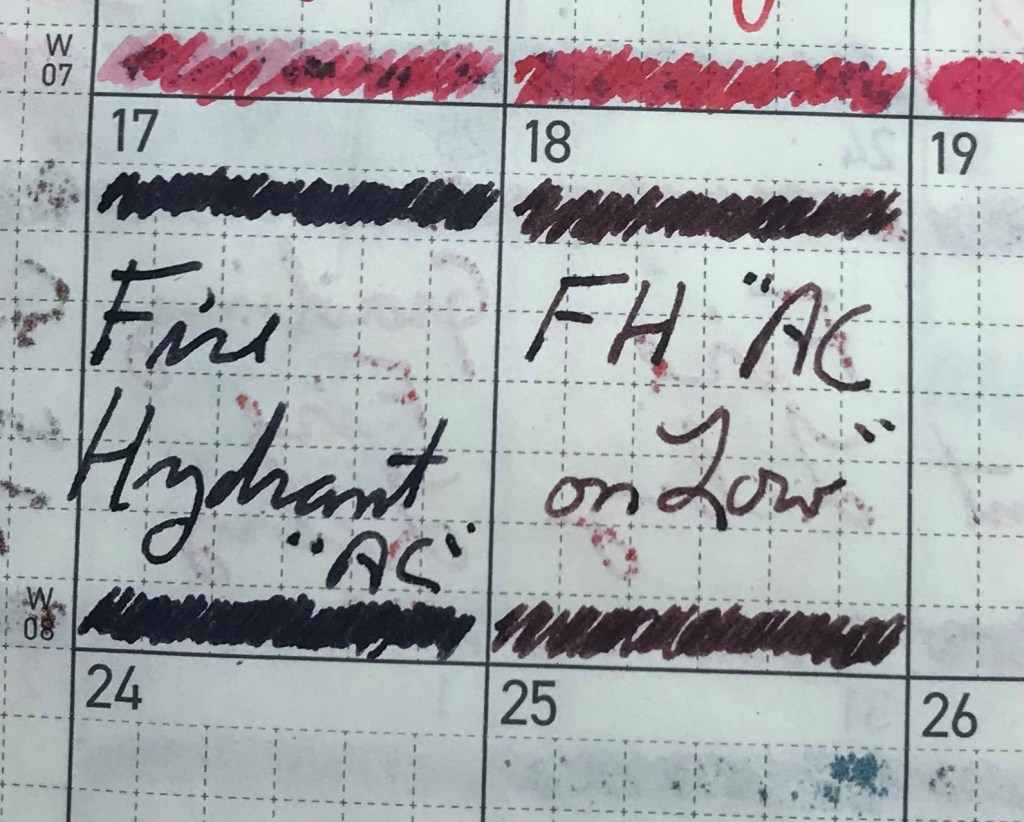 W
07
17
18
19
Fire
Hydrant
"AC"
FH "AC
on Low"
W
08
24
25
26